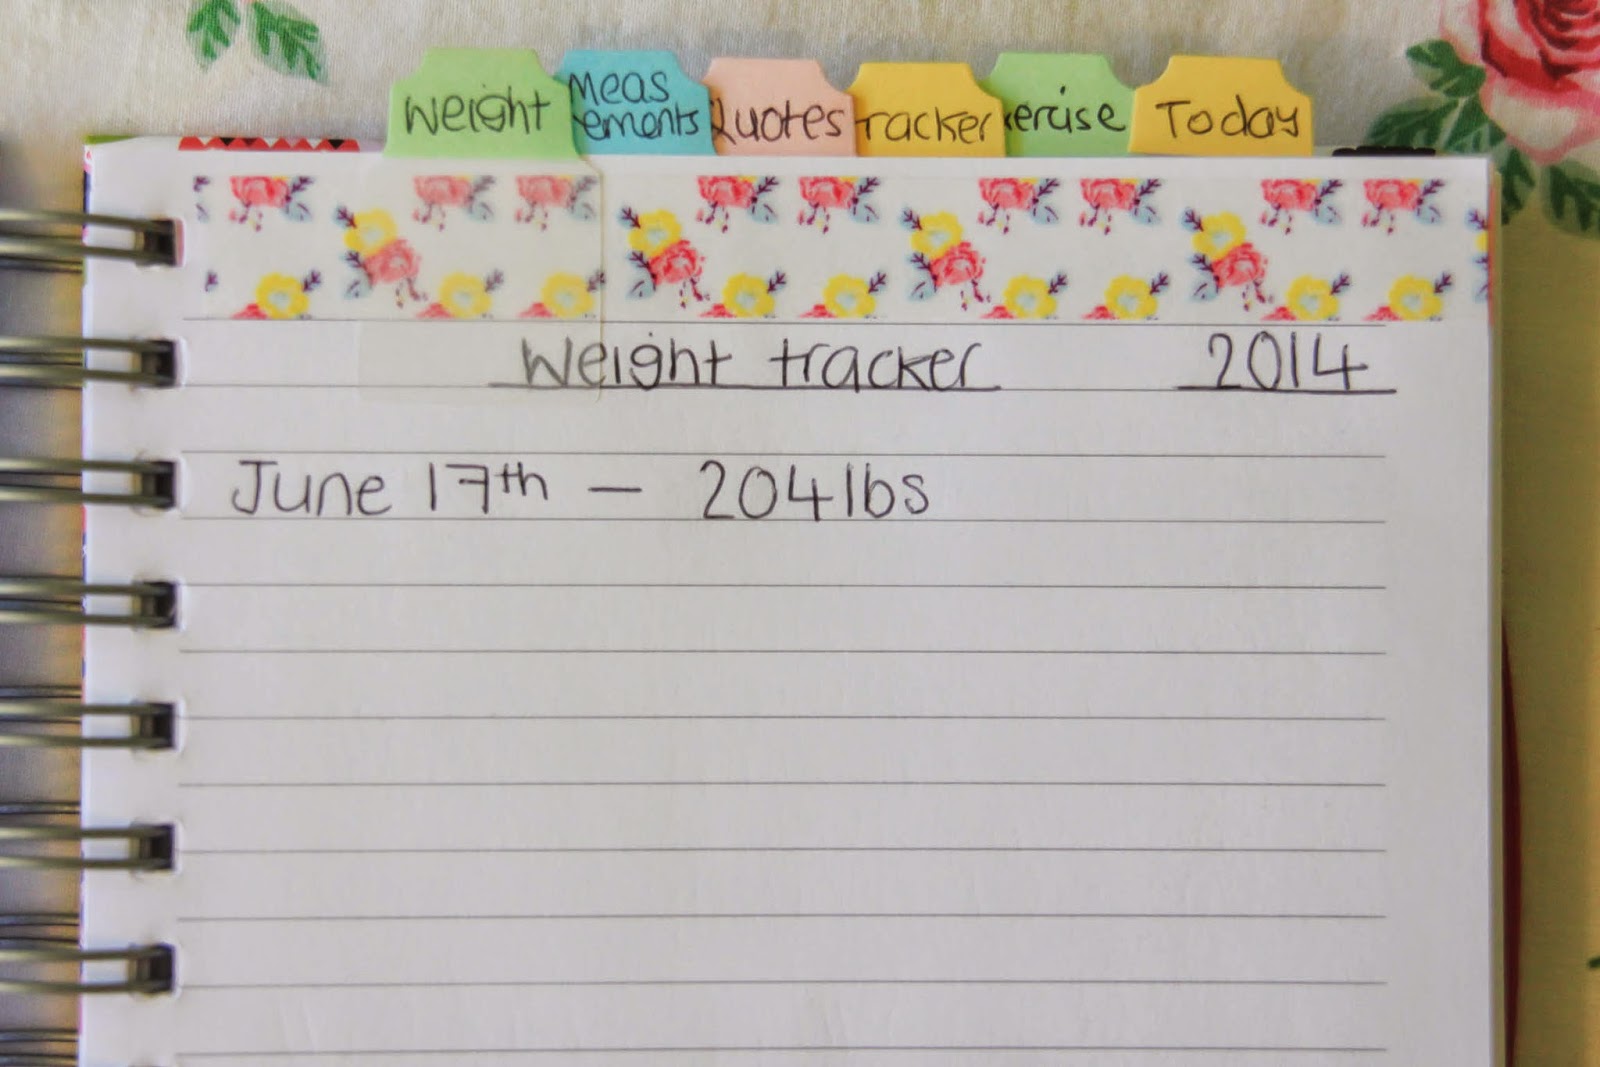 Weight
Meas
ements
Quotes
racker
ercise
Today
Weight tracker 2014
June 17th - 204lbs